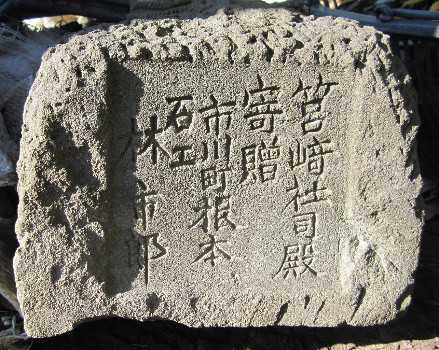 筥﨑社司殿
寄贈
市川町根本
石工
林市郎